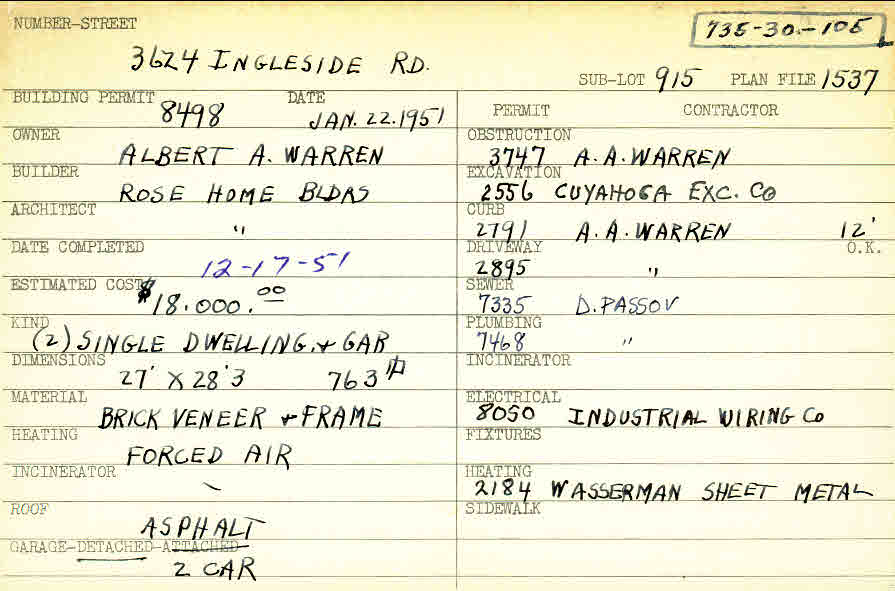 NUMBER-STREET
735-30-105
3624 INGLESIDE RD.
SUB-LOT 915 PLAN FILE 1537
BUILDING PERMIT 8498 DATE JAN. 22. 1951
OWNER
ALBERT A. WARREN
BUILDER
ROSE HOME BLDRS
ARCHITECT
"
DATE COMPLETED
12-17-51
ESTIMATED COST
$18.000.00
KIND
(2) SINGLE DWELLING, & GAR
DIMENSIONS
27' X 28'3 763
MATERIAL
BRICK VENEER & FRAME
HEATING
FORCED AIR
INCINERATOR
ROOF
ASPHALT
GARAGE-DETACHED-ATTACHED
2 CAR
PERMIT CONTRACTOR
OBSTRUCTION
3747 A.A. WARREN
EXCAVATION
2556 CUYAHOGA EXC. CO
CURB
2791 A.A. WARREN 12'
DRIVEWAY O.K.
2895 "
SEWER
7335 D. PASSOV
PLUMBING
7468 "
INCINERATOR
ELECTRICAL
8050 INDUSTRIAL WIRING CO
FIXTURES
HEATING
2184 WASSERMAN SHEET METAL
SIDEWALK